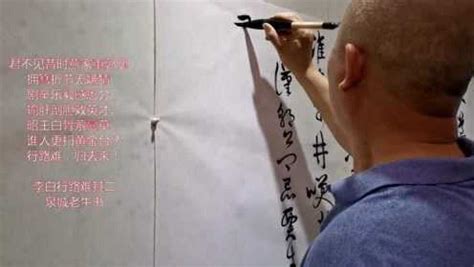 君不见昔时燕家重郭隗
拥篲折节无嫌猜
剧辛乐毅感恩分
输肝剖胆效英才
昭王白骨萦蔓草
谁人更扫黄金台？
行路难，归去来！
李白行路难其二
泉城老牛书
淮阴市井笑
漢朝公卿忌賈生